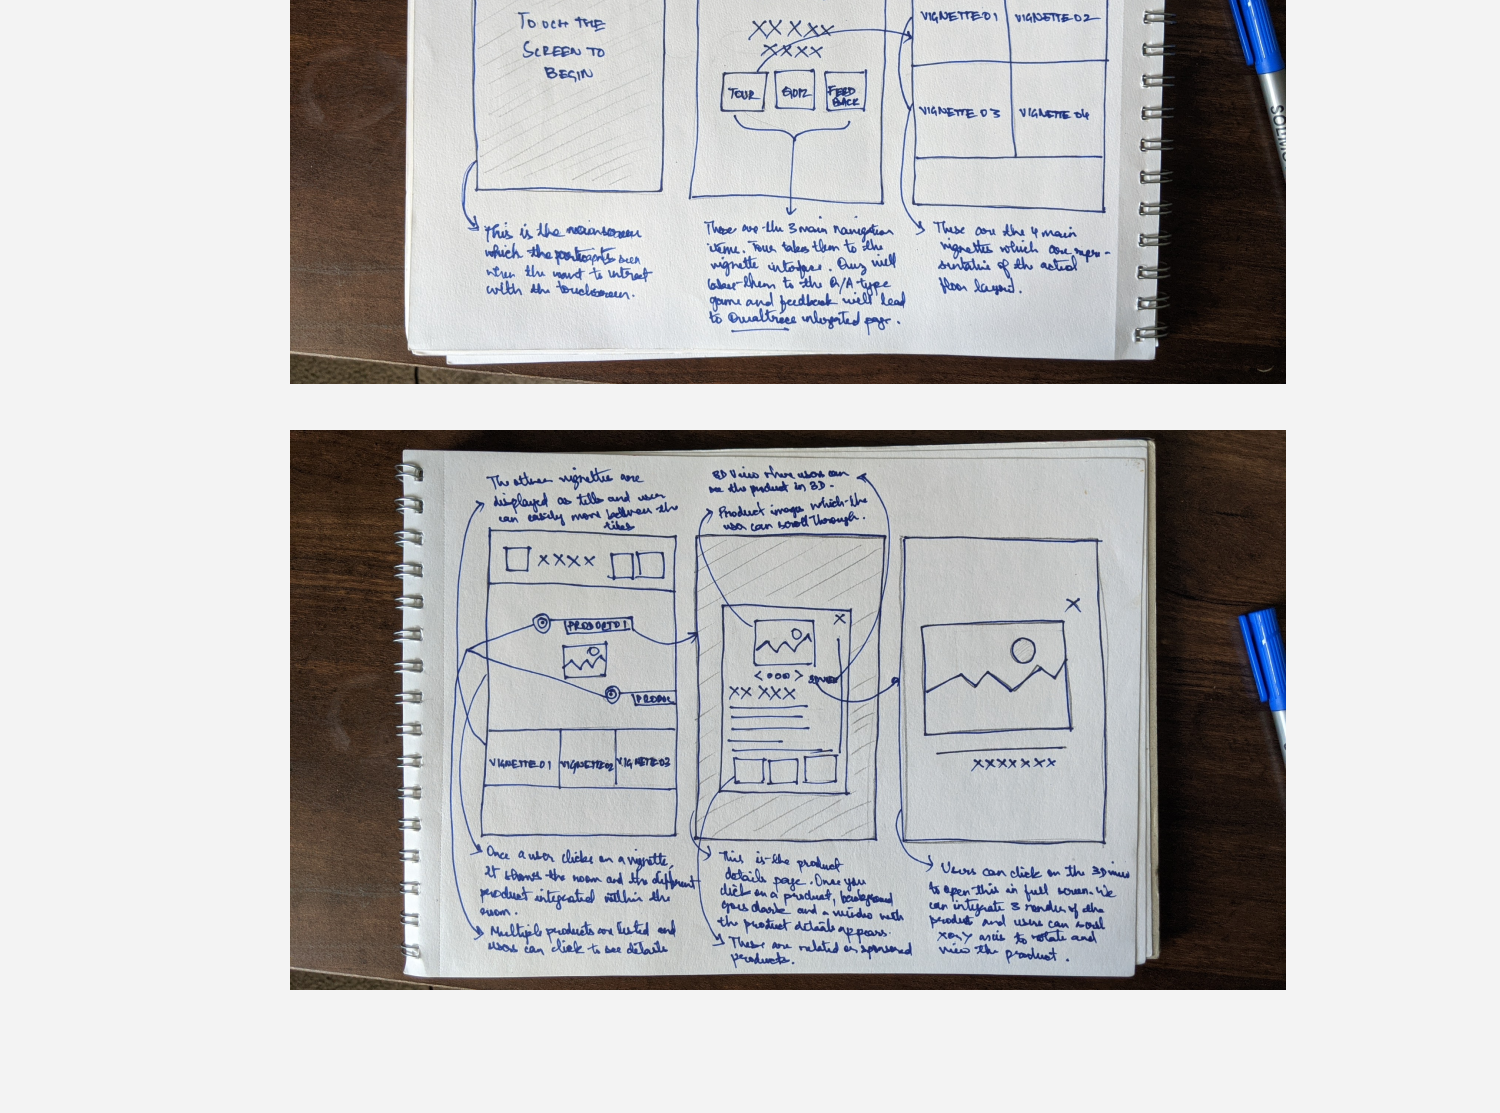 TOUCH THE
SCREEN TO
BEGIN
This is the mainscreen
which the participants seen
when the want to interact
with the touchscreen.
XX X XX
XXXX
TOUR
QUIZ
FEED
BACK
These are the 3 main navigation
items. Tour takes them to the
vignette interface. Quiz will
take them to the Q/A type
game and feedback will lead
to Qualtrics integrated page.
VIGNETTE 01
VIGNETTE 02
VIGNETTE 03
VIGNETTE 04
These are the 4 main
vignettes which are repre-
sentative of the actual
floor layout.
SOLIMO
The other vignettes are
displayed as tiles and user
can easily move between the
tiles
XXXX
PRODUCT 01
PRODUC
VIGNETTE 01
VIGNETTE 02
VIGNETTE 03
Once a user clicks on a vignette,
it shows the room and the different
product integrated within the
room.
Multiple products are listed and
users can click to see details
3D View where users can
see the product in 3D.
Product images which the
user can scroll through.
X
< ooo >
3D VIEW
XX XXX
This is the product
details page. Once you
click on a product, background
goes dark and a window with
the product details appears.
These are related or sponsored
products.
X
XXXXXXX
Users can click on the 3D view
to open this in full screen. We
can integrate 3 render of the
product and users can scroll
X or Y axis to rotate and
view the product.